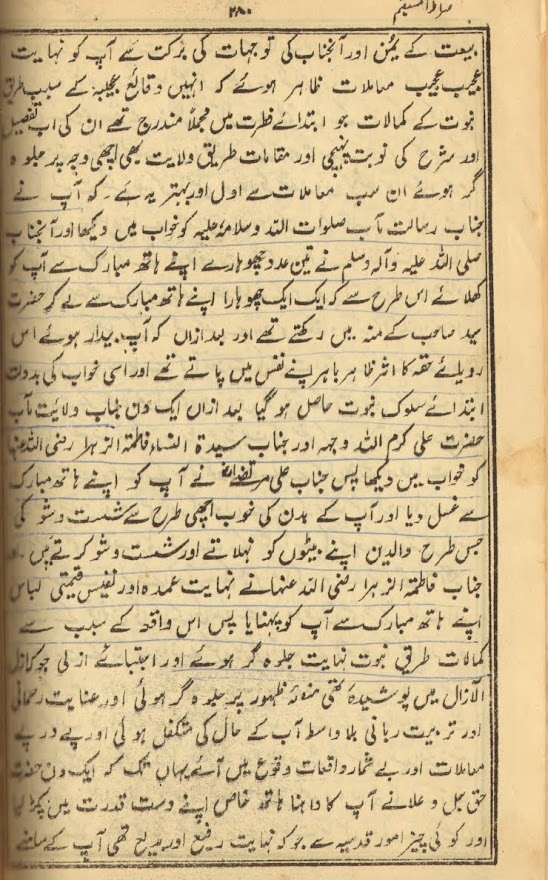 صراط المستقیم ۲۸۰
بیعت کے یُمن اور آنجناب کی توجہات کی برکت سے آپ کو نہایت
عجیب عجیب معاملات ظاہر ہوئے کہ انہیں وقائع عجیبہ کے سبب طریق
نبوت کے کمالات جو ابتدائے فطرت میں مجملاً مندرج تھے ان کی اب تفصیل
اور شرح کی نوبت پہنچی اور مقامات طریق ولایت بھی اچھی وجہ پر جلوہ
گر ہوئے ان سب معاملات سے اول اور بہتر یہ ہے۔ کہ آپ نے
جناب رسالت مآب صلوات اللہ وسلامہٗ علیہ کو خواب میں دیکھا اور آنجناب
صلی اللہ علیہ وآلہ وسلم نے تین عدد چھوہارے اپنے ہاتھ مبارک سے آپ کو
کھلائے اس طرح سے کہ ایک ایک چھوہارا اپنے ہاتھ مبارک سے لے کر حضرت
سید صاحب کے منہ میں رکھتے تھے اور بعد ازاں کہ آپ بیدار ہوئے اس
رویائے حقہ کا اثر ظاہر باہر اپنے نفس میں پاتے تھے اور اسی خواب کی بدولت
ابتدائے سلوک نبوت حاصل ہو گیا بعد ازاں ایک دن جناب ولائیت مآب
حضرت علی کرم اللہ وجہہ اور جناب سیدۃ النساء فاطمۃ الزہرا رضی اللہ عنہا
کو خواب میں دیکھا پس جناب علی مرتضیٰ نے آپ کو اپنے ہاتھ مبارک
سے غسل دیا اور آپ کے بدن کی خوب اچھی طرح سے شست وشو کی
جس طرح والدین اپنے بیٹوں کو نہلاتے اور شست وشو کرتے ہیں۔ اور
جناب فاطمۃ الزہرا رضی اللہ عنہا نے نہایت عمدہ اور نفیس قیمتی لباس
اپنے ہاتھ مبارک سے آپ کو پہنایا پس اس واقعہ کے سبب سے
کمالات طریق نبوت نہایت جلوہ گر ہوئے اور اجتبائے ازلی جو کہ ازل
الآزال میں پوشیدہ تھی منصۂ ظہور پر جلوہ گر ہوئی اور عنایت رحمانی
اور تربیت ربانی بلا واسطہ آپ کے حال کی متکفل ہوئی اور پے در پے
معاملات اور بے شمار واقعات وقوع میں آئے یہاں تک کہ ایک دن حضرت
حق جل وعلا نے آپ کا داہنا ہاتھ خاص اپنے دست قدرت میں پکڑ لیا
اور کوئی چیز امور قدسیہ سے جو کہ نہایت رفیع اور بدیع تھی آپ کے سامنے